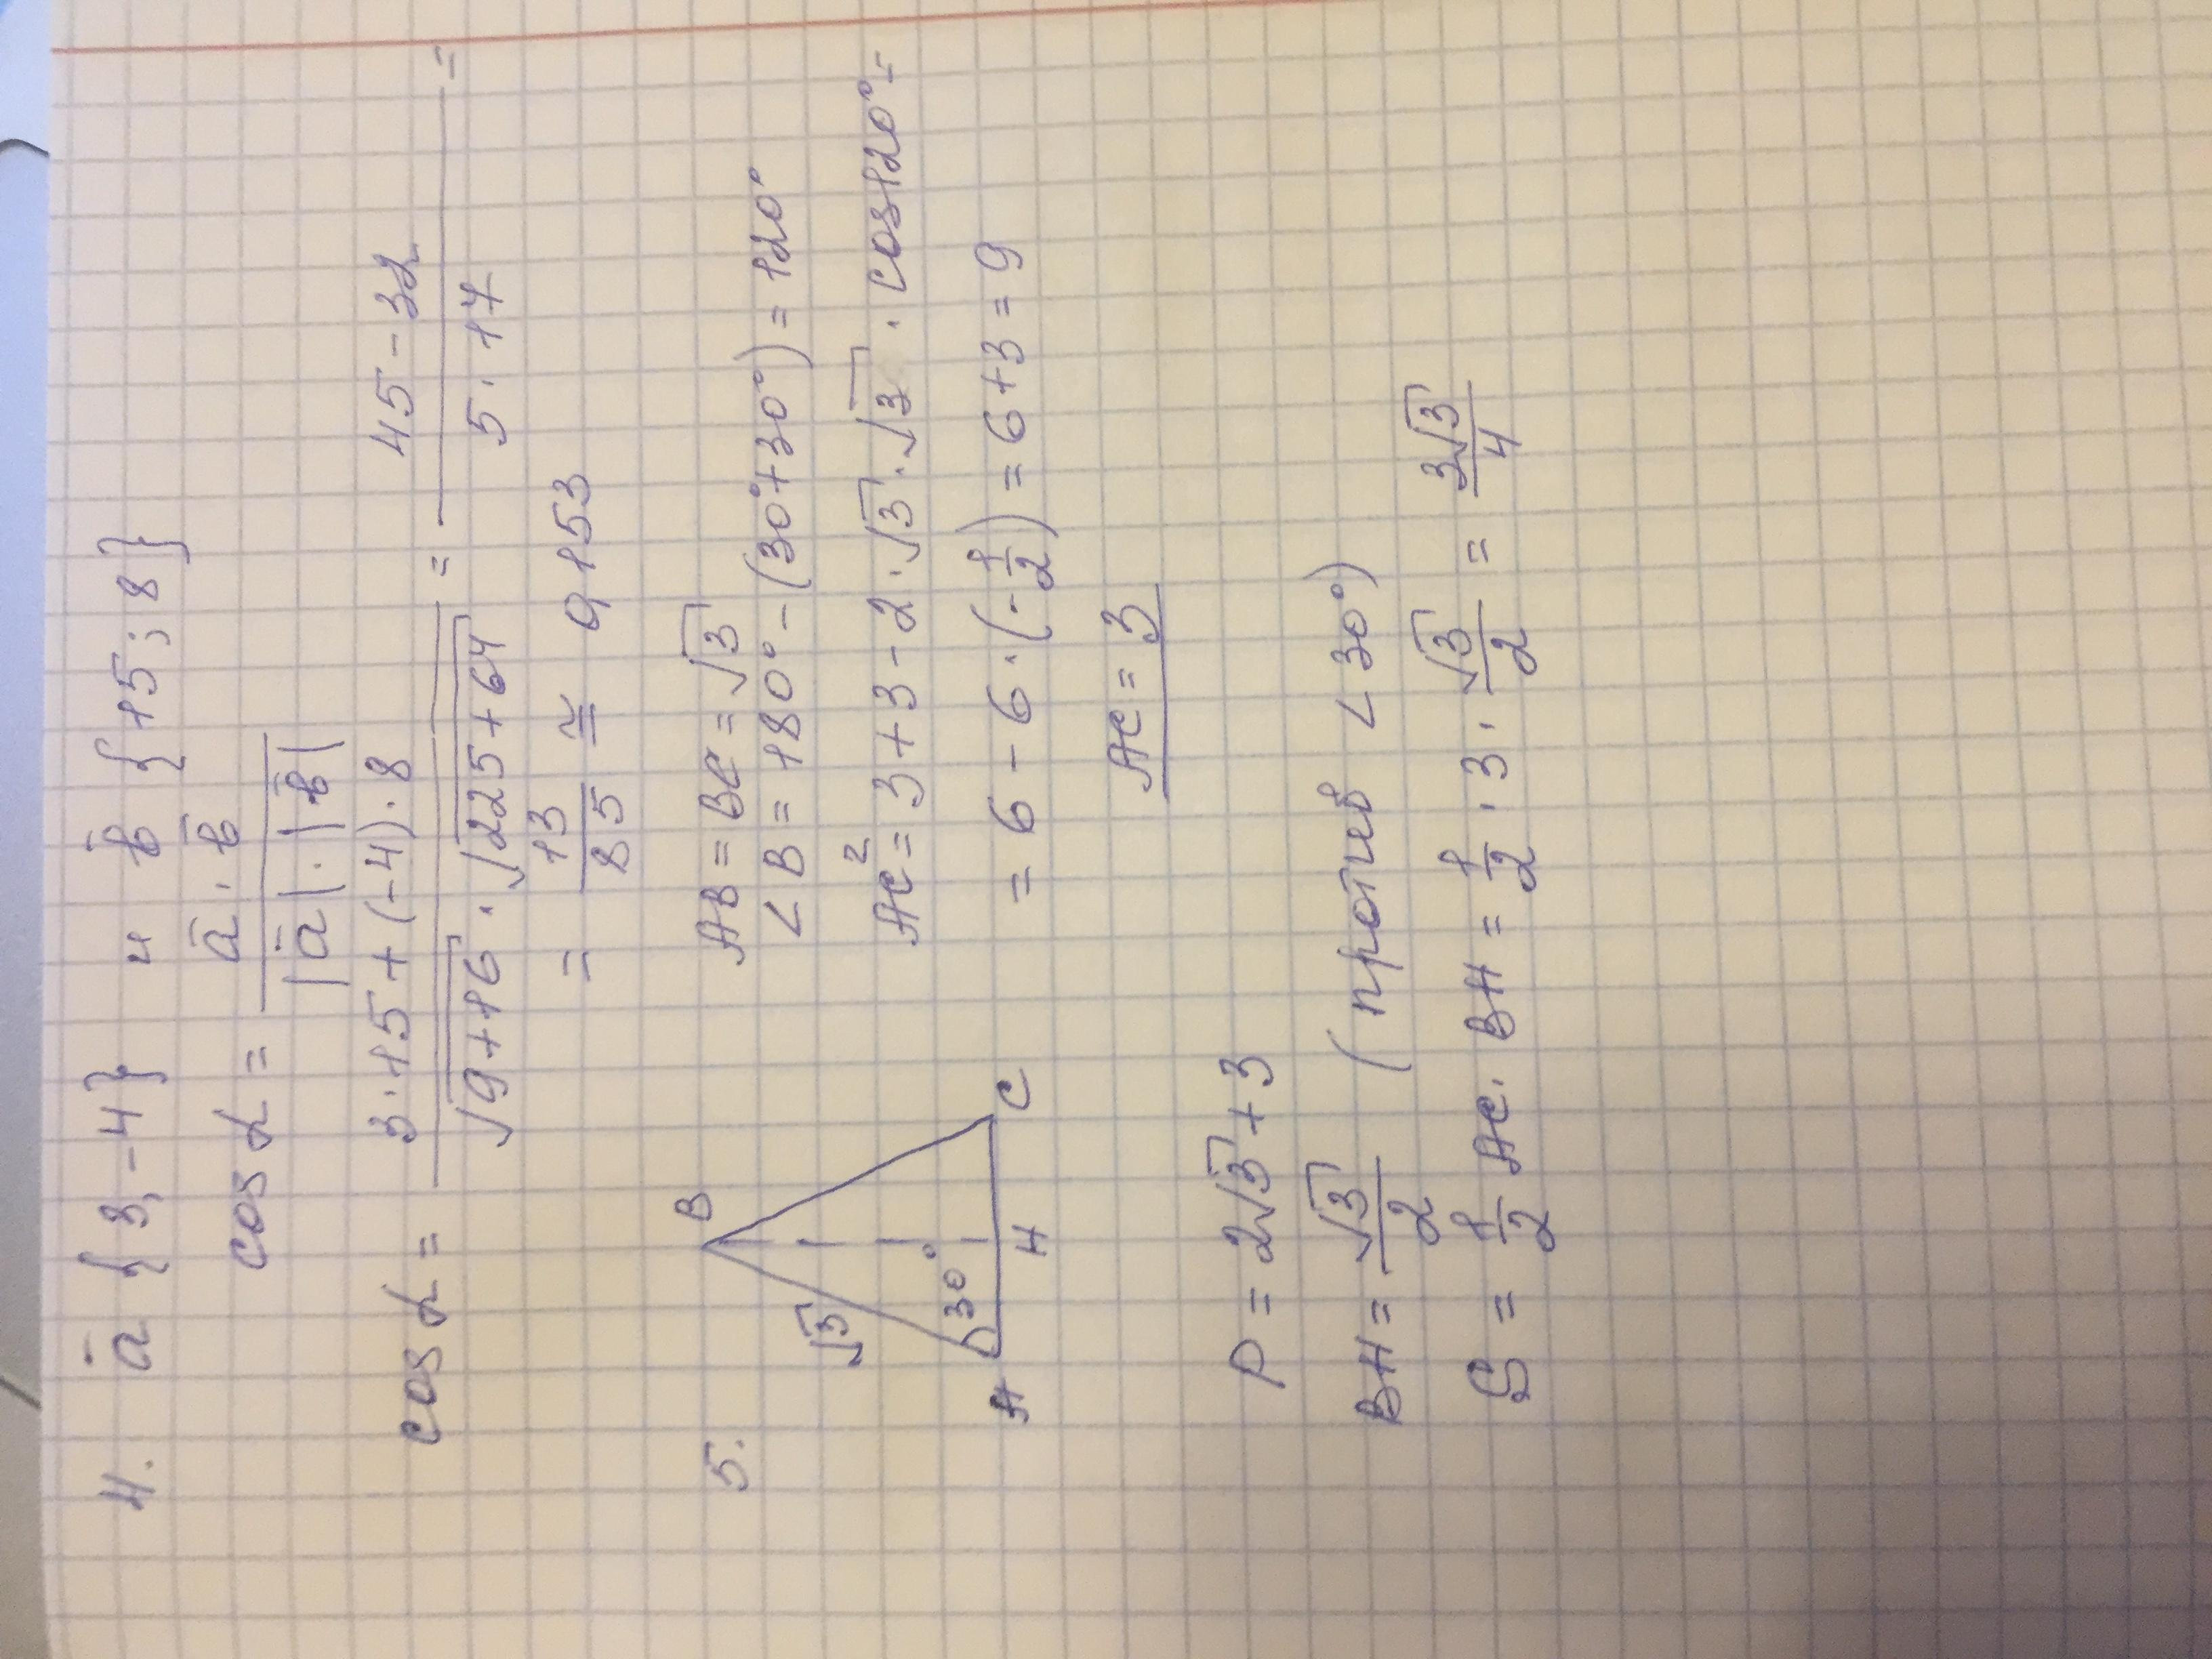 4. ā {3,-4} и b̄ {15; 8}
cos α = ā · b̄ / |ā| · |b̄|
cos α = 3·15 + (-4)·8 / √9+16 · √225+64 = 45 - 32 / 5 · 17 =
= 13/85 ≅ 0,153
5. B √3 30° A H C
AB = BC = √3
∠B = 180° - (30°+30°) = 120°
AC² = 3 + 3 - 2 · √3 · √3 · cos120° =
= 6 - 6 · (-1/2) = 6 + 3 = 9
AC = 3
P = 2√3 + 3
BH = √3/2 (против ∠30°)
S = 1/2 AC · BH = 1/2 · 3 · √3/2 = 3√3/4